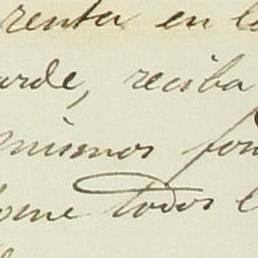 renta en l
arde, reciba
mismos fon
ome todos l